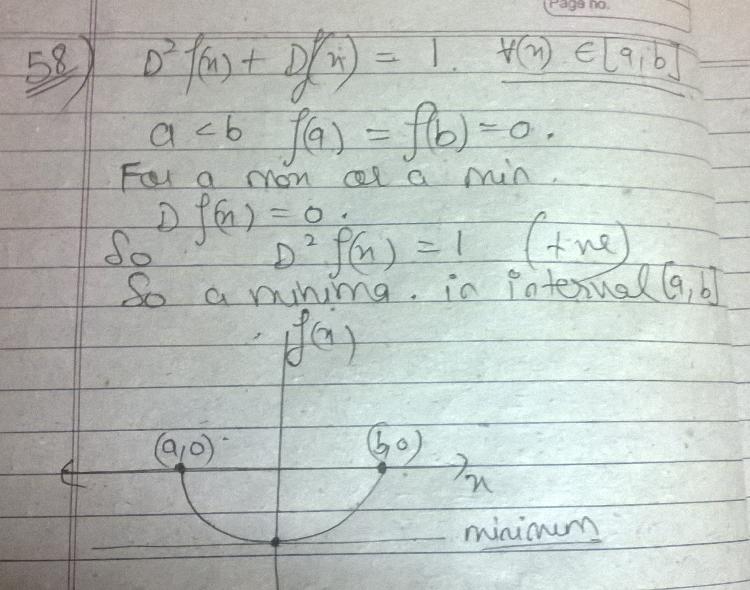 Page no.
58) D² f(x) + Df(x) = 1. ∀(x) ∈ [a,b]
a < b f(a) = f(b) = 0.
For a max or a min.
D f(x) = 0.
So D² f(x) = 1 (+ve)
So a minima. in interval [a,b]
f(x)
(a,0) (b,0)
x
minimum